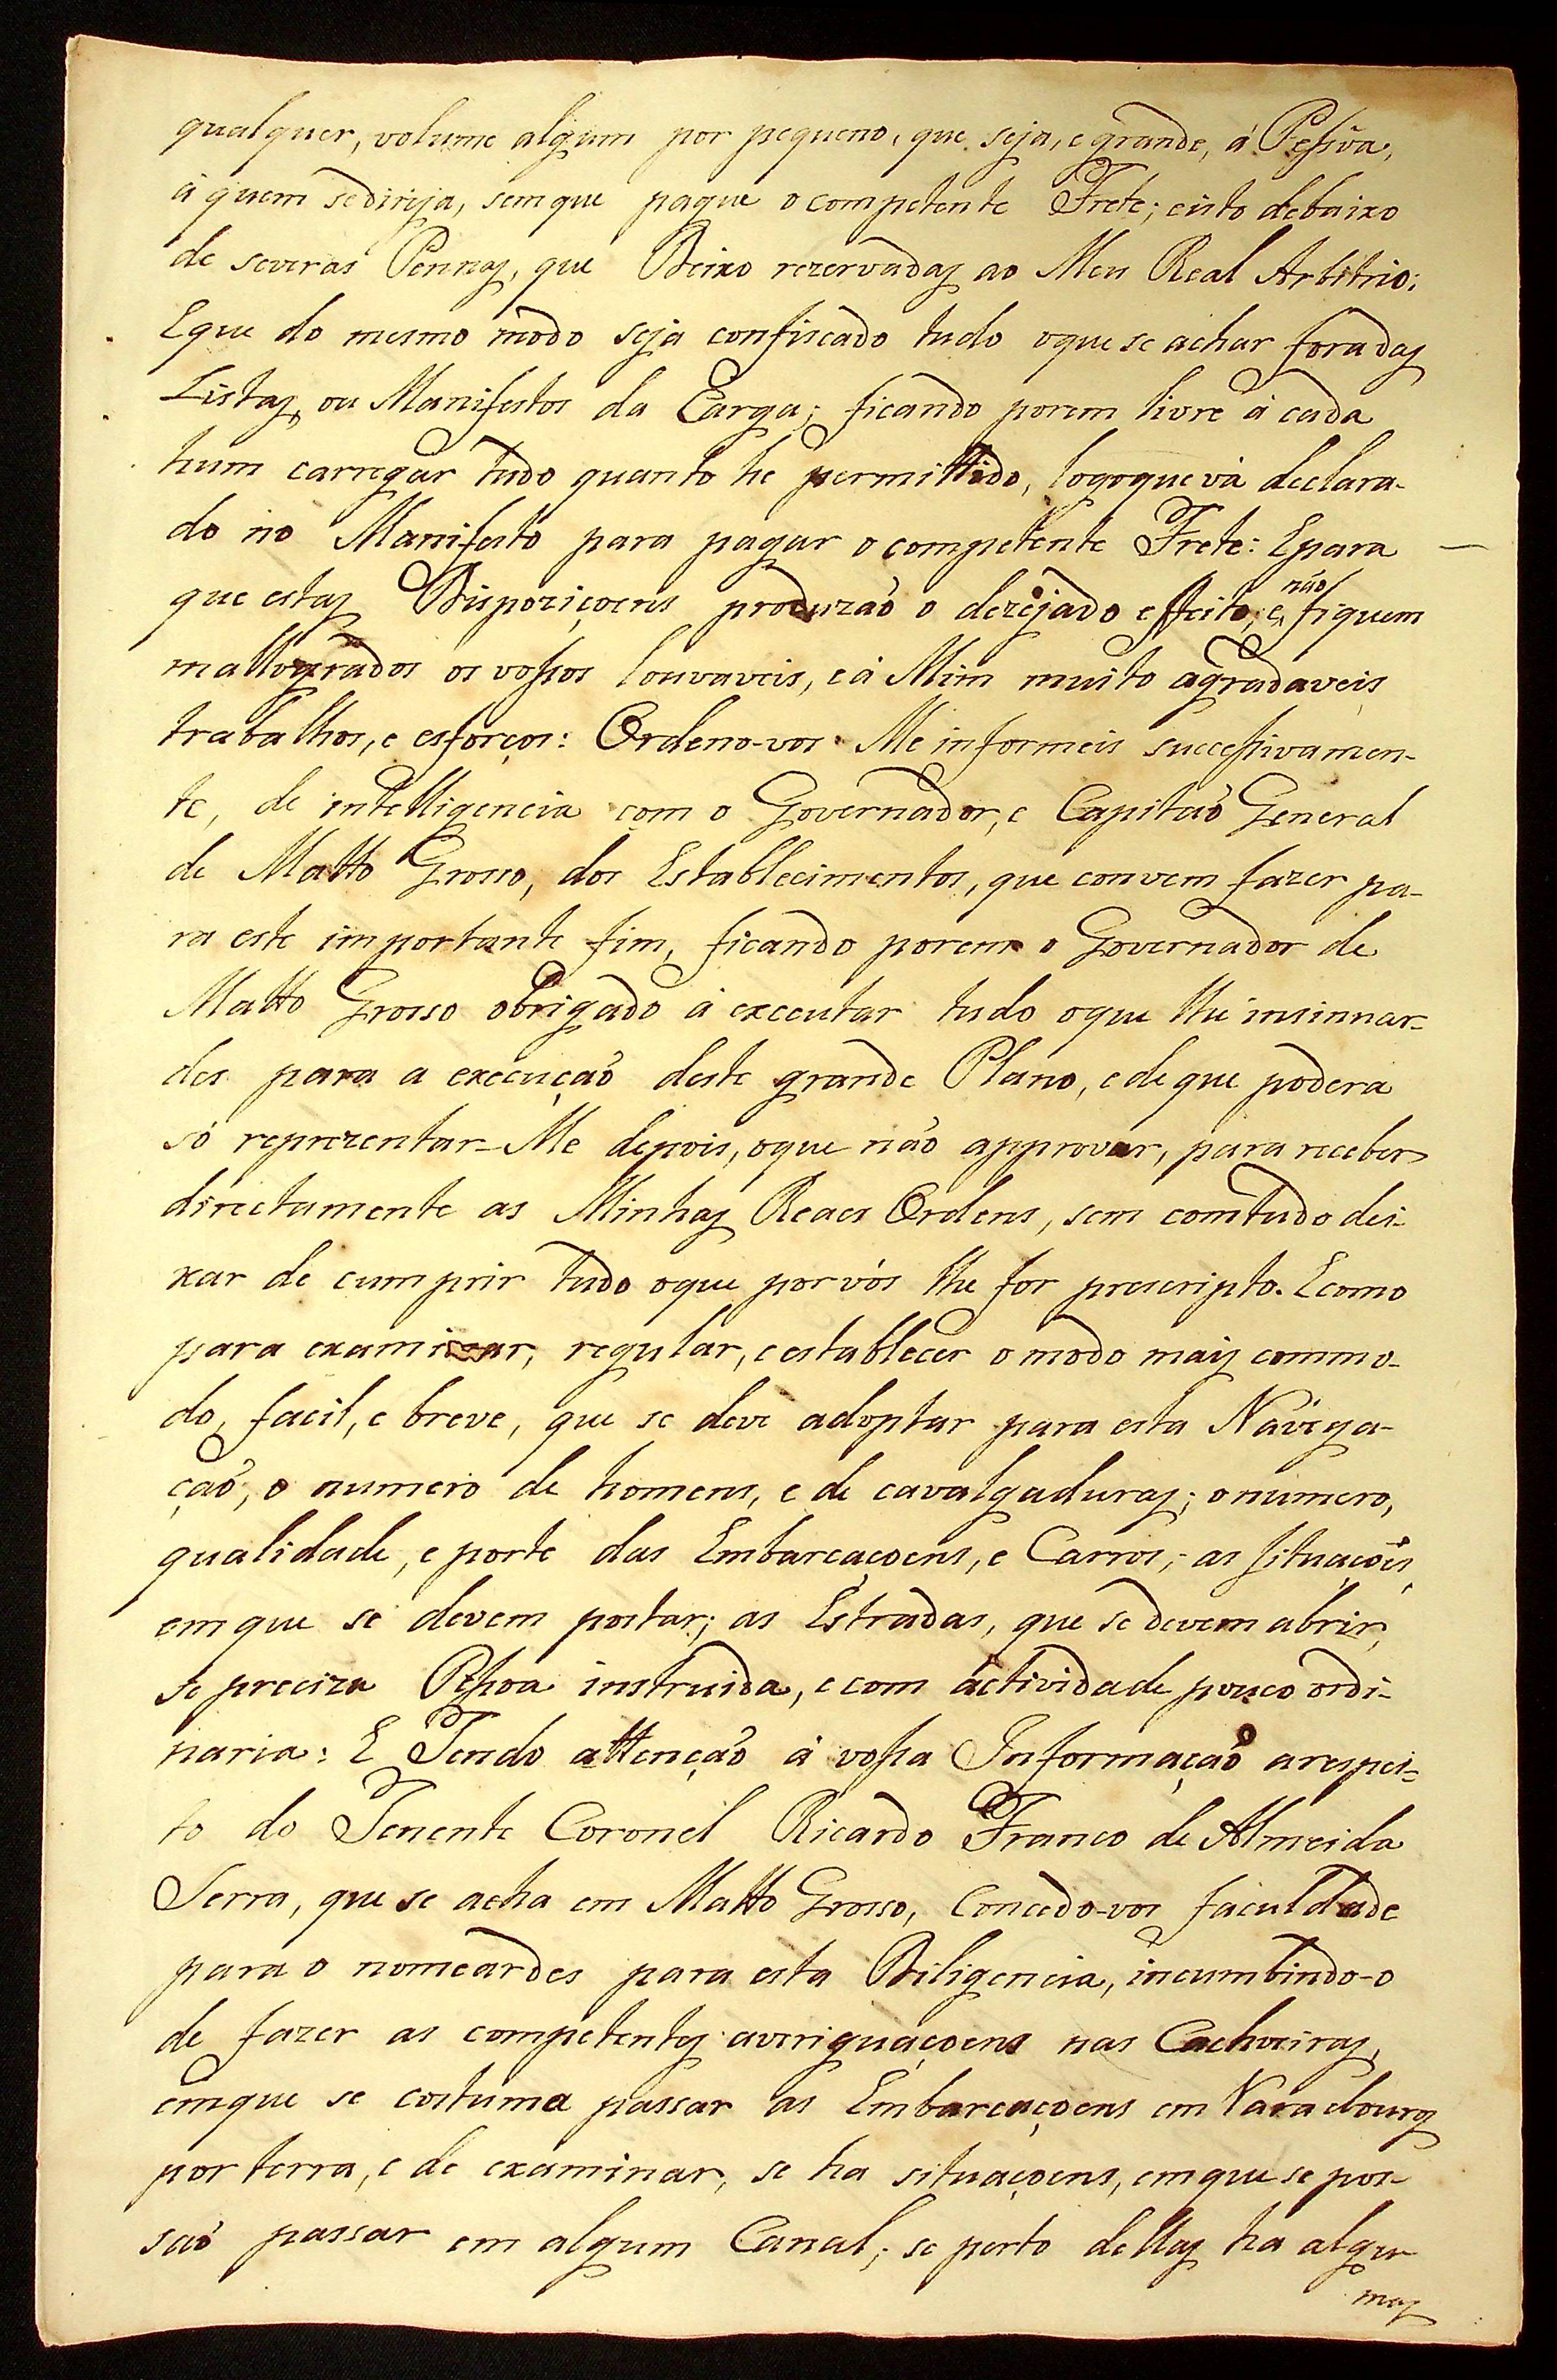 qualquer, volume algum por pequeno, que seja, e grande, á Peſsoa,
á quem sedirija, semque pague ocompetente Frete; eisto debaixo
de severas Pennas, que Deixo rezervadas ao Meu Real Arbitrio:
Eque do mesmo modo seja confiscado tudo oque se achar foradas
Listas, ou Manifestos da Carga; ficando porem livre á cada
hum carregar tudo quanto he permittido, logoque vá declara-
do no Manifesto para pagar ocompetente Frete: Epara
que estas Dispoziçoens produzaõ o dezejado effeito, e não fiquem
mallogrados os voſsos louvaveis, e á Mim muito agradaveis
trabalhos, e esforços: Ordeno-vos Me informeis succeſsivamen-
te, de intelligencia com o Governador, e Capitaõ General
de Matto Grosso, dos Establecimentos, que convem fazer pa-
ra este importante fim, ficando porem o Governador de
Matto Grosso obrigado á executar tudo oque lhe insinuar-
des para a execuçaõ deste grande Plano, e de que podera
só reprezentar-Me depois, oque naõ approvar, para receber
directamente as Minhas Reaes Ordens, sem comtudo dei-
xar de cumprir tudo oque por vós lhe for prescripto. Ecomo
para examinar, regular, e establecer o modo mais commo-
do, facil, e breve, que se deve adoptar para esta Navega-
çaõ, o numero de homens, e de cavalgaduras; onumero,
qualidade, e porte das Embarcaçoens, e Carros; as situaçoĩs,
emque se devem postar; as Estradas, que se devem abrir,
se preciza Peſsoa instruida, ecom actividade pouco ordi-
naria: E Tendo attençaõ á voſsa Informaçaõ arespei-
to do Tenente Coronel Ricardo Franco de Almeida
Serra, que se acha em Matto Grosso, Concedo-vos faculdade
para o nomeardes para esta Diligencia, incumbindo-o
de fazer as competentes averiguaçoens nas Cachoeiras,
emque se costuma passar as Embarcaçoens em Varadouros
por terra, e de examinar, se ha situaçoens, emque se pos-
saõ passar em algum Canal; se perto dellas ha algu-
mas